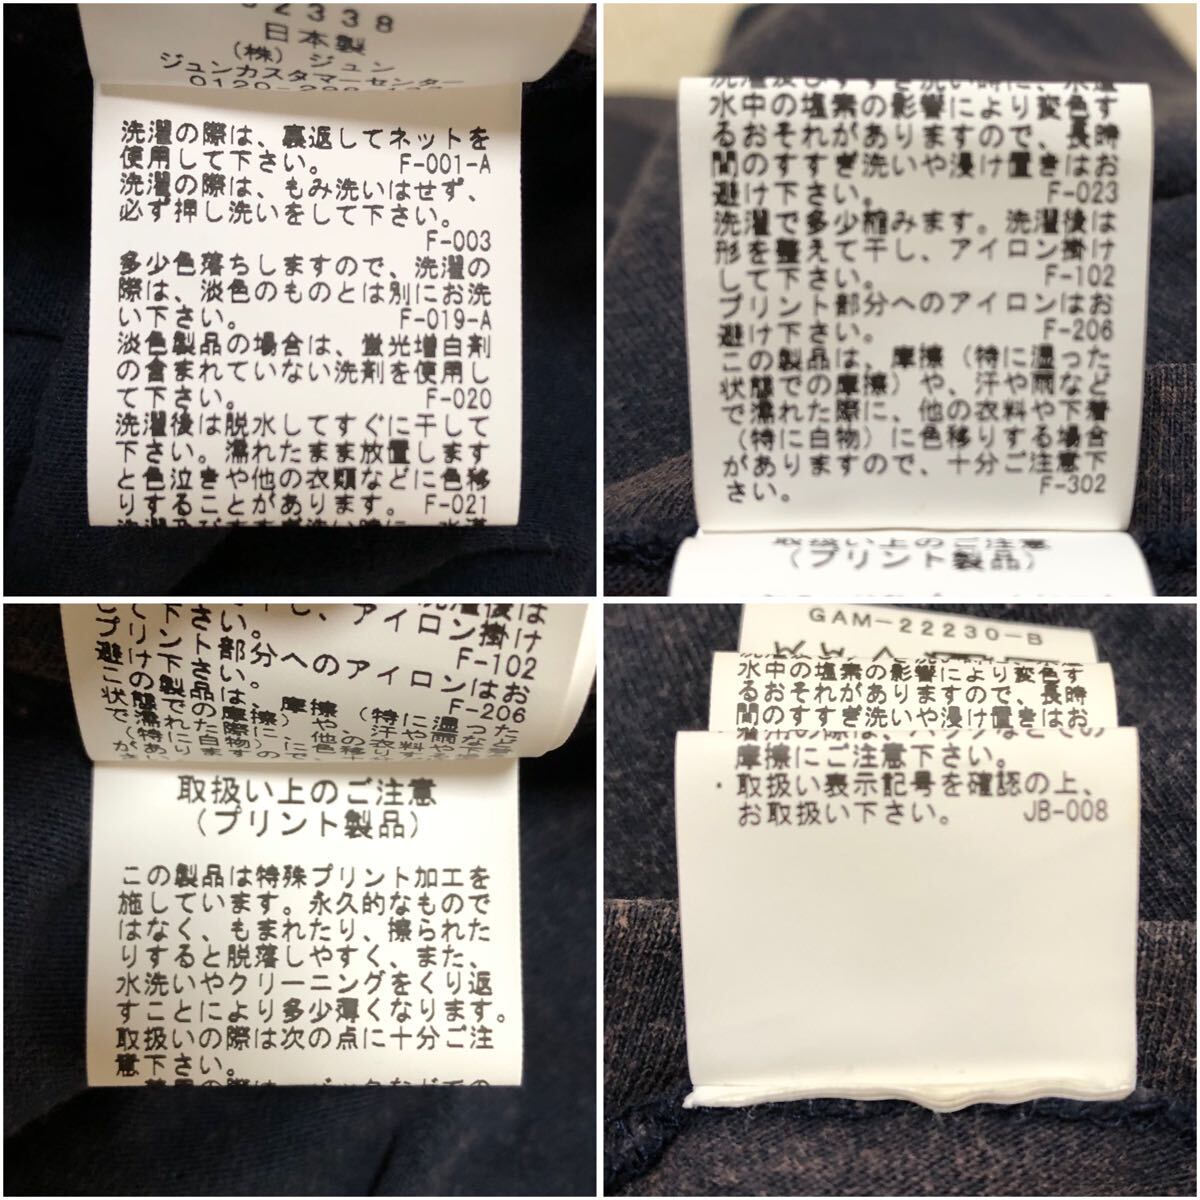 02338
日本製
(株) ジュン
ジュンカスタマーセンター
洗濯の際は、裏返してネットを
使用して下さい。 F-001-A
洗濯の際は、もみ洗いはせず、
必ず押し洗いをして下さい。
F-003
多少色落ちしますので、洗濯の
際は、淡色のものとは別にお洗
い下さい。 F-019-A
淡色製品の場合は、蛍光増白剤
の含まれていない洗剤を使用し
て下さい。 F-020
洗濯後は脱水してすぐに干して
下さい。濡れたまま放置します
と色泣きや他の衣類などに色移
りすることがあります。 F-021
洗濯及びすすぎ洗い時に、水道
水中の塩素の影響により変色す
るおそれがありますので、長時
間のすすぎ洗いや浸け置きはお
避け下さい。 F-023
洗濯で多少縮みます。洗濯後は
形を整えて干し、アイロン掛け
して下さい。 F-102
プリント部分へのアイロンはお
避け下さい。 F-206
この製品は、摩擦(特に湿った
状態での摩擦)や、汗や雨など
で濡れた際に、他の衣料や下着
(特に白物)に色移りする場合
がありますので、十分ご注意下
さい。 F-302
取扱い上のご注意
(プリント製品)
し、アイロン掛け
F-102
ント部分へのアイロンはお
F-206
取扱い上のご注意
(プリント製品)
この製品は特殊プリント加工を
施しています。永久的なもので
はなく、もまれたり、擦られた
りすると脱落しやすく、また、
水洗いやクリーニングをくり返
すことにより多少薄くなります。
取扱いの際は次の点に十分ご注
意下さい。
GAM-22230-B
水中の塩素の影響により変色す
るおそれがありますので、長時
間のすすぎ洗いや浸け置きはお
摩擦にご注意下さい。
・取扱い表示記号を確認の上、
お取扱い下さい。 JB-008